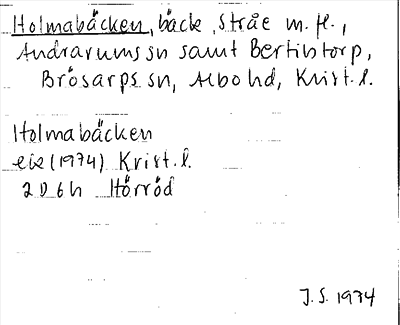 Holmabäcken, bäck, Stråe m. fl.,
Andrarums sn samt Bertilstorp,
Brösarps sn, Albo hd, Krist. l.
Holmabäcken
ek (1974) Krist. l.
2D 6h Hörröd
J. S. 1974